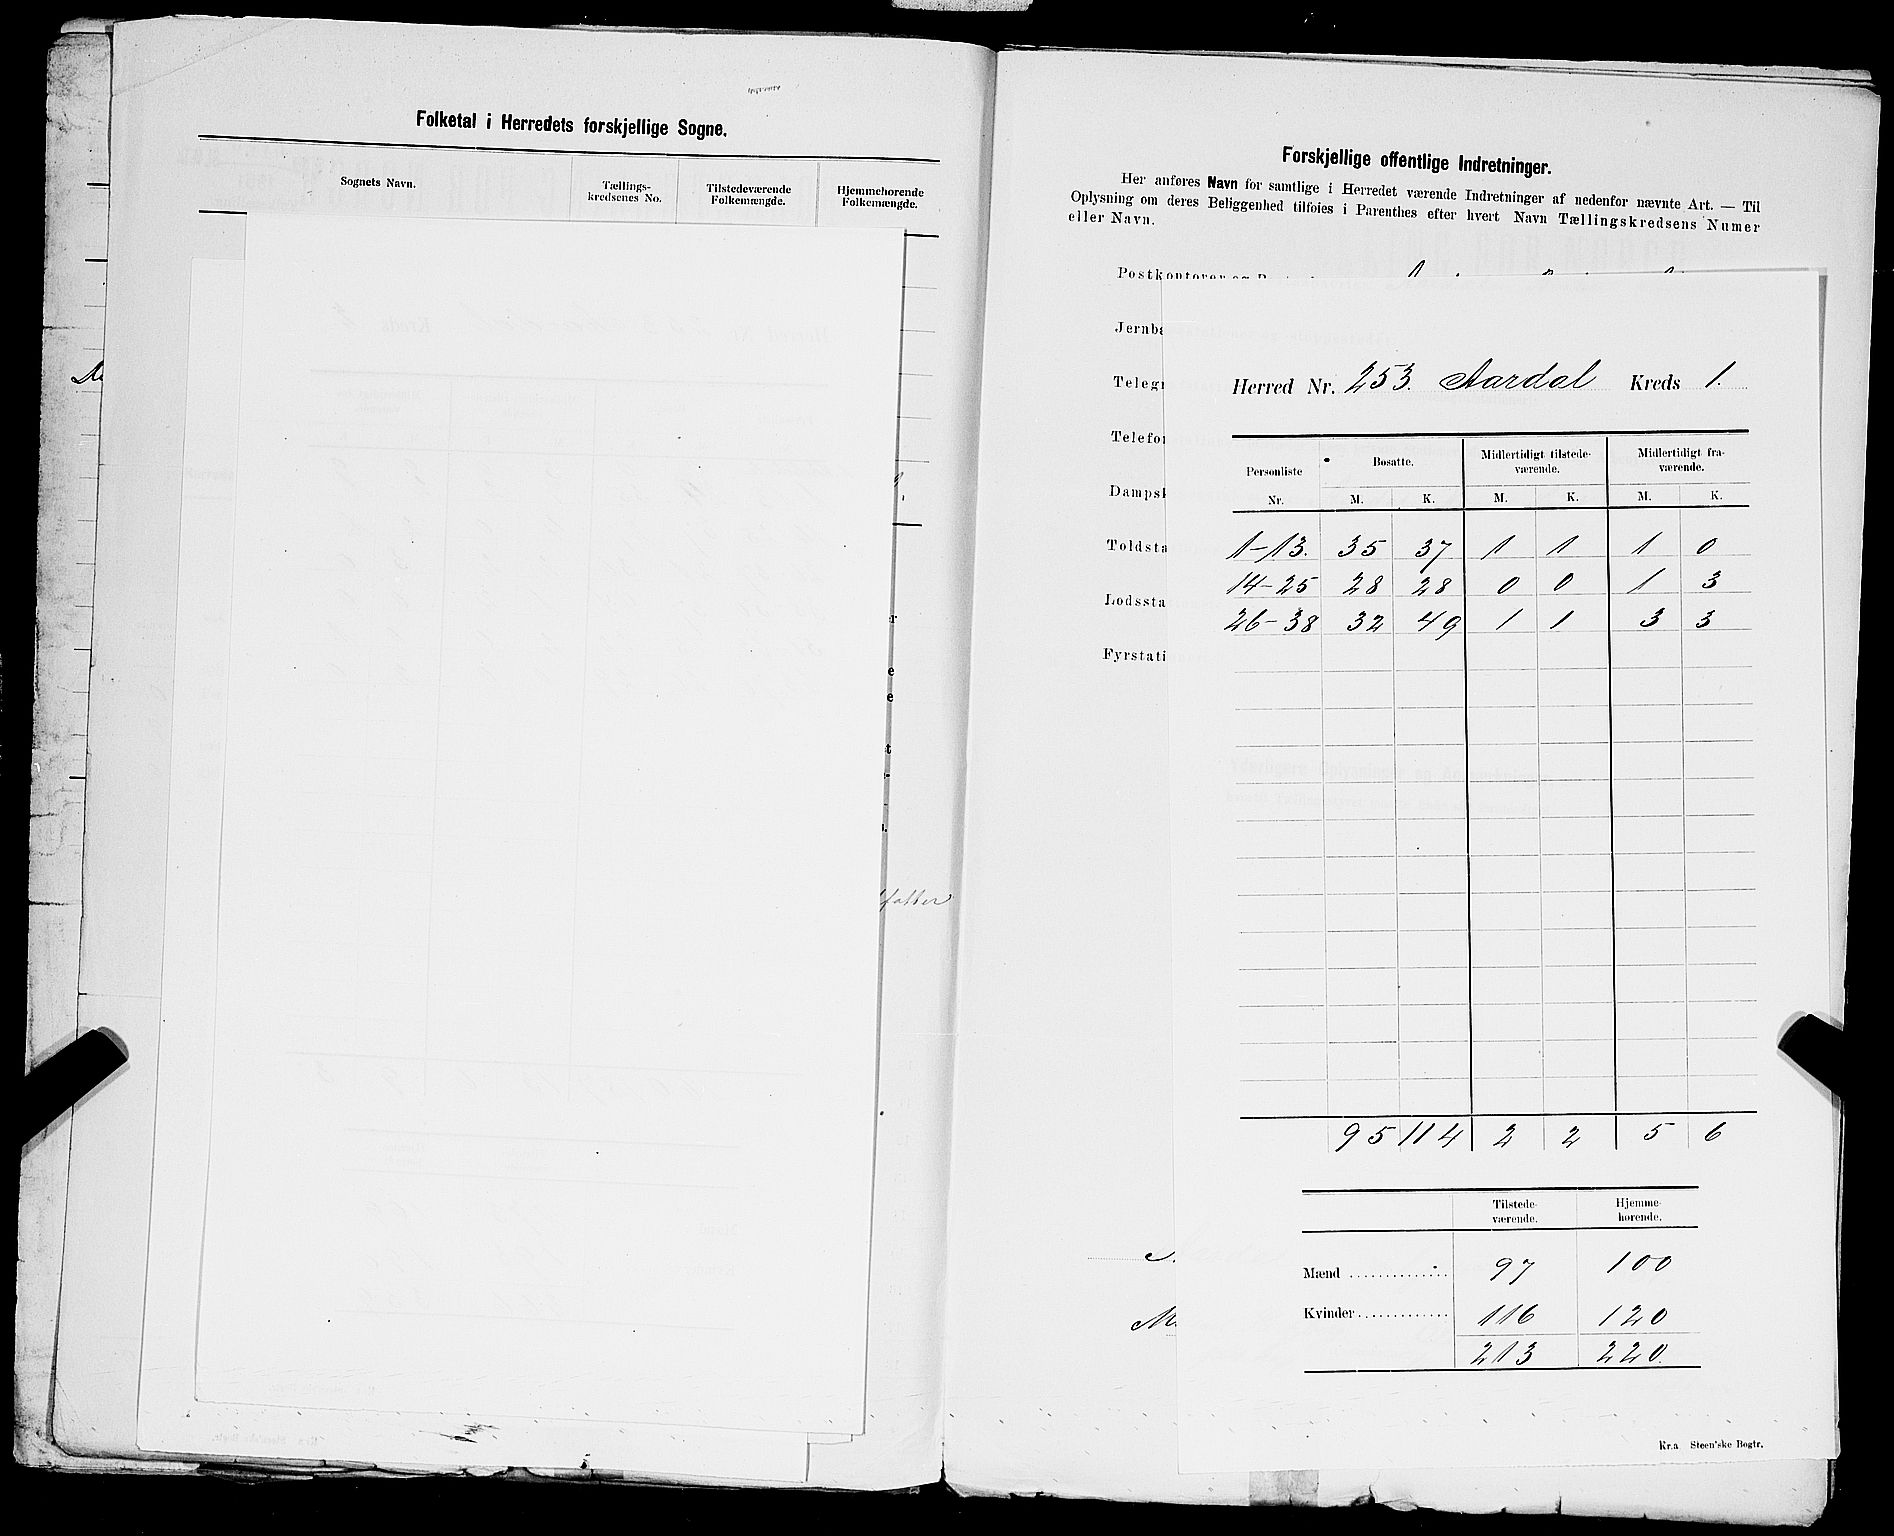 Folketal i Herredets forskjellige Sogne.
Sognets Navn. Tællings-kredsenes No. Tilstedeværende Folkemængde. Hjemmehørende Folkemængde.
Forskjellige offentlige Indretninger.
Her anføres Navn for samtlige i Herredet værende Indretninger af nedenfor nævnte Art. — Til
Oplysning om deres Beliggenhed tilføies i Parenthes efter hvert Navn Tællingskredsens Numer
eller Navn.
Postkontorer og
Jernba
Telegr
Telefo
Dampsk
Toldsta
Lodssta
Fyrstati
Herred Nr. 253. Aardal Kreds 1.
Personliste Nr. Bosatte. Midlertidigt tilstede-værende. Midlertidigt fra-værende.
M. K. M. K. M. K.
1-13. 35 37 1 1 1 0
14-25 28 28 0 0 1 3
26-38 32 49 1 1 3 3
95 114 2 2 5 6
Tilstede-værende. Hjemme-hørende.
Mænd 97 100
Kvinder 116 120
213 220.
Kr.a Steen'ske Bogtr.